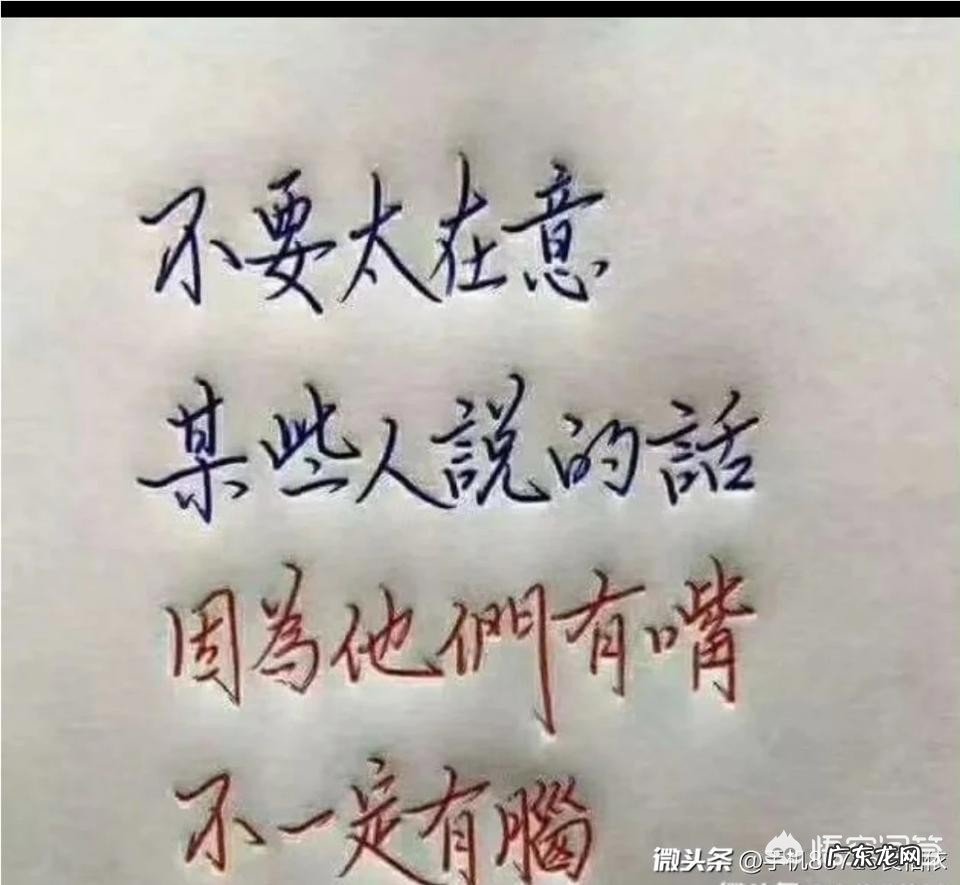 不要太在意
某些人說的話
因為他們有嘴
不一定有腦
悟空问答
微头条
广东龙网